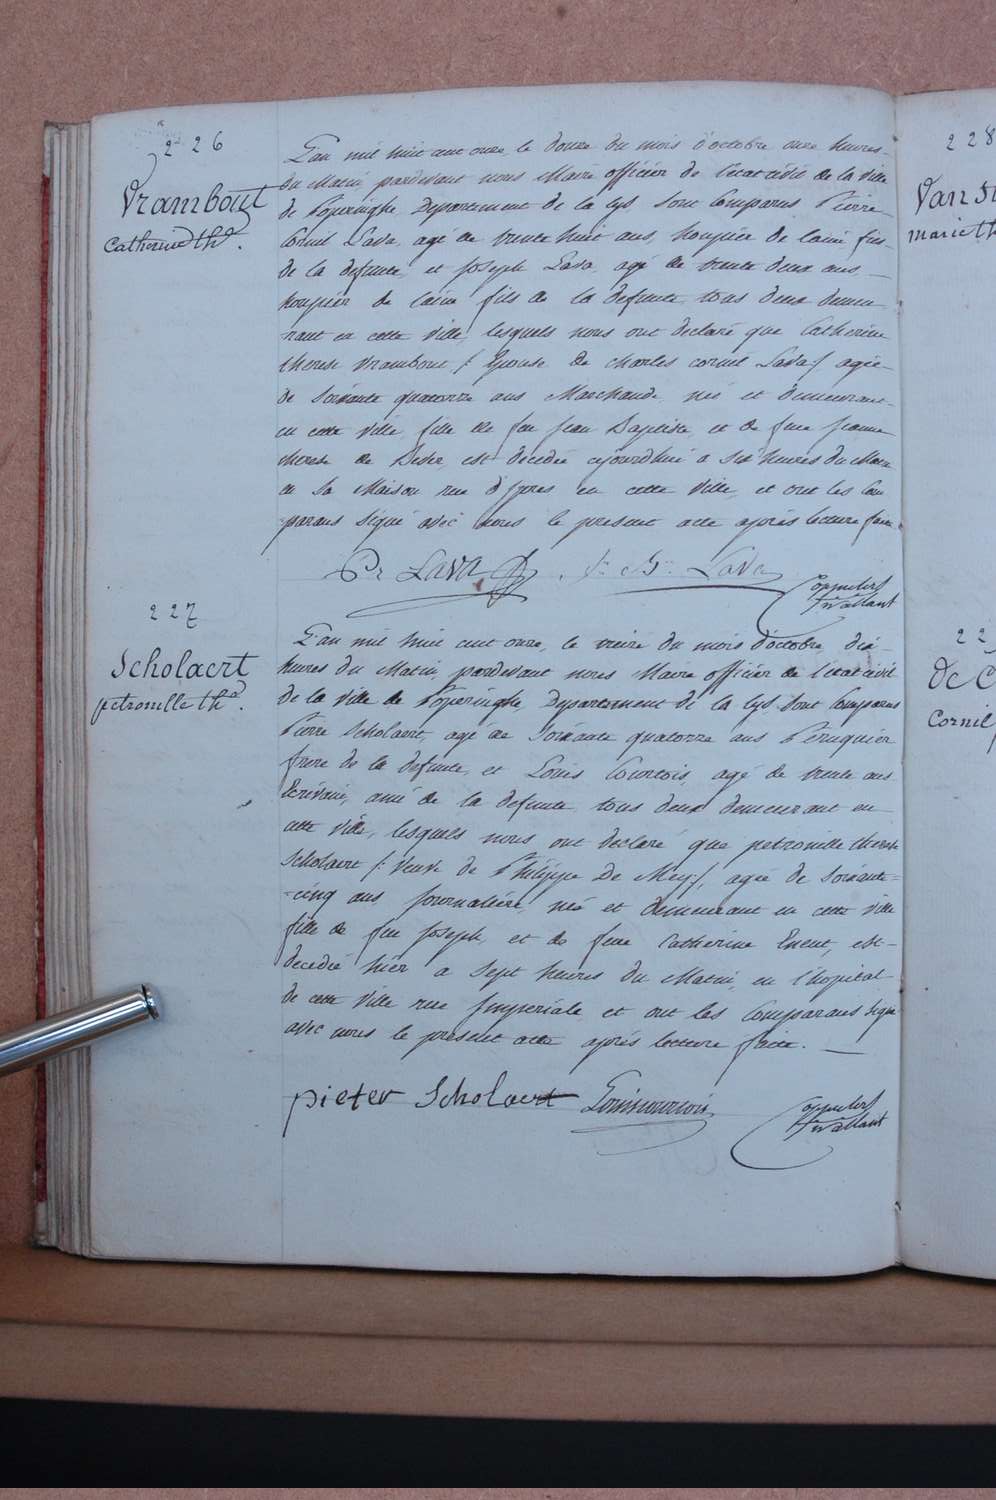 226
Vrambout
Catherine thé.
L'an mil huit cent onze, le douze du mois d'octobre onze heures
du Matin, pardevant nous Maire officier de l'etat civil de la ville
de Poperinghe, Departement de la Lys, sont Comparus Pierre
Cornil Lava, agé de trente huit ans, houpier de laine fils
de la defunte, et Joseph Lava, agé de trente deux ans
houpier de laine fils de la defunte, tous deux demeu
rant en cette ville, lesquels nous ont declaré que Catherine
therese Vrambout /: Epouse de Charles cornil Lava :/ agée
de Soixante quatorze ans Marchande, née et demeurant
en cette ville, fille de feu Jean Baptiste, et de feue Jeanne
therese de , est decedée ajourdhui a six heures du Matin
en Sa Maison rue d'Ypres en cette ville, et ont les Com
parans signé avec nous le present acte après lecture faite.
Pr Lava J. Bte Lava
Coppulers
frv allant
227
Scholaert
petronille thé.
L'an mil huit cent onze, le treize du mois d'octobre, dix
heures du Matin, pardevant nous Maire officier de l'etat civil
de la ville de Poperinghe, Departement de la Lys, sont Comparus
Pierre Scholaert, agé de Soixante quatorze ans Péruquier
frere de la defunte, et Louis Courtois agé de trente ans
Ecrivain, ami de la defunte, tous deux demeurant en
cette ville, lesquels nous ont declaré que petronille therese
Scholaert /: Veuve de Philippe De Mey :/, agée de Soixante
-cinq ans Journalière, née et demeurant en cette ville
fille de feu Joseph, et de feue Catherine , est
decedée hier a Sept heures du Matin, en l'hopital
de cette ville rue Imperiale, et ont les Comparans signé
avec nous le present acte après lecture faite.
pieter Scholaert Louis courtois
Coppulers
frv allant
228
Van
marie th
22
De C
Cornil